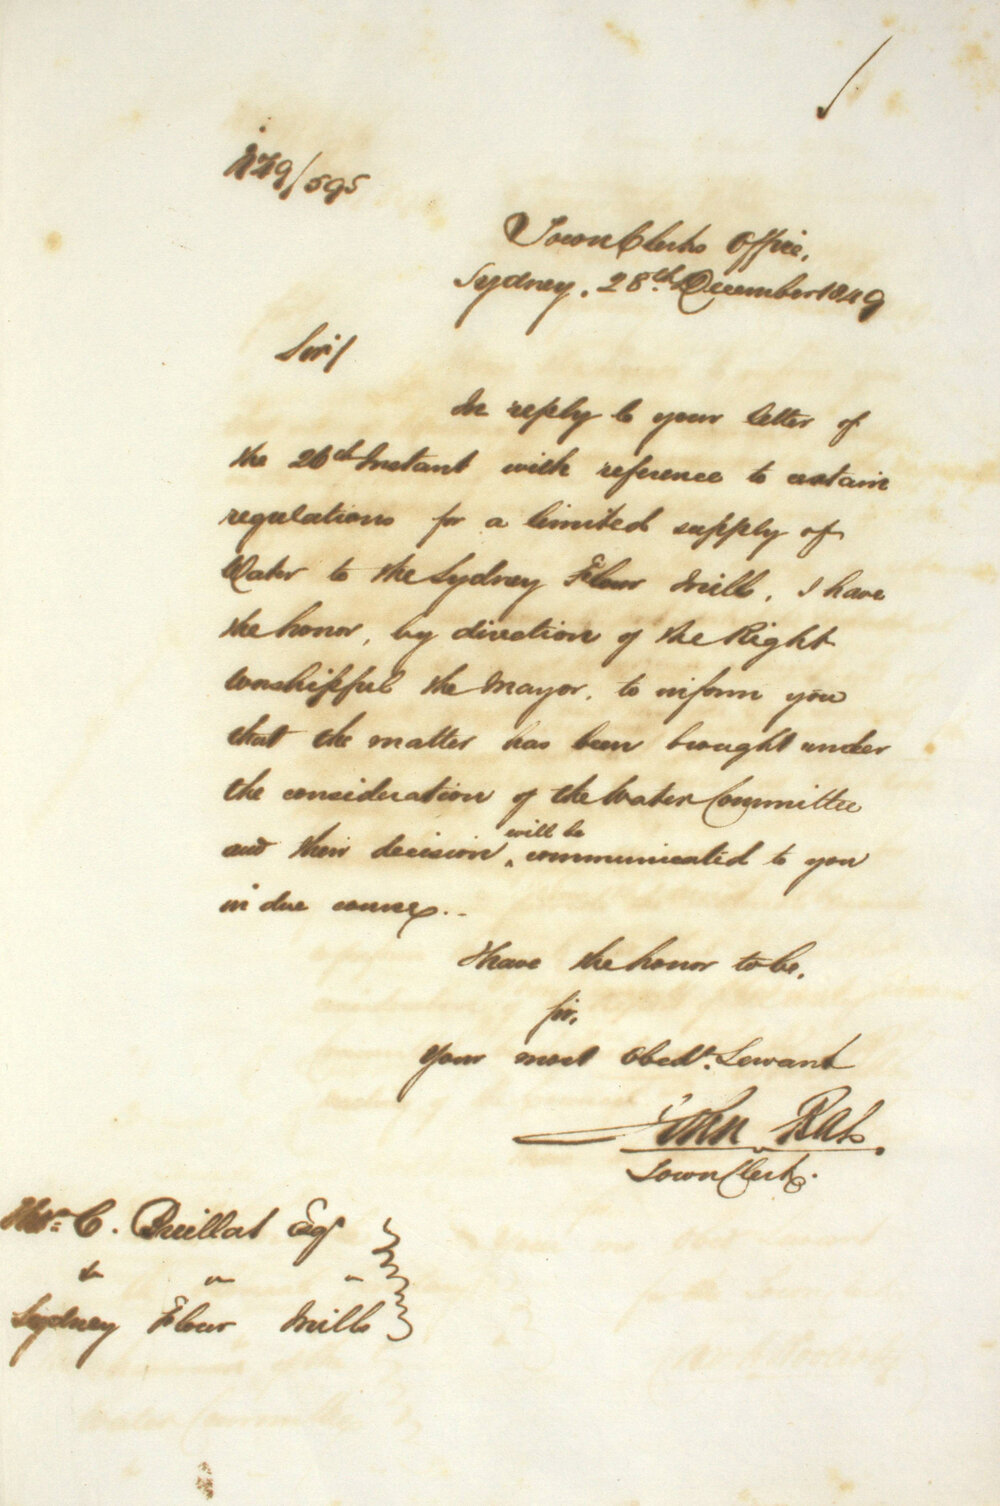 49/595
Town Clerks Office,
Sydney, 28th December 1849
Sir/
In reply to your letter of
the 26th Instant with reference to certain
regulations for a limited supply of
Water to the Sydney Flour Mills, I have
the honor, by direction of the Right
Worshipful the Mayor, to inform you
that the matter has been brought under
the consideration of the Water Committee
and their decision will be communicated to you
in due course..
I have the honor to be,
Sir,
Your most Obedt. Servant
John Rae
Town Clerk.
C. Breillat Esq
Sydney Flour Mills